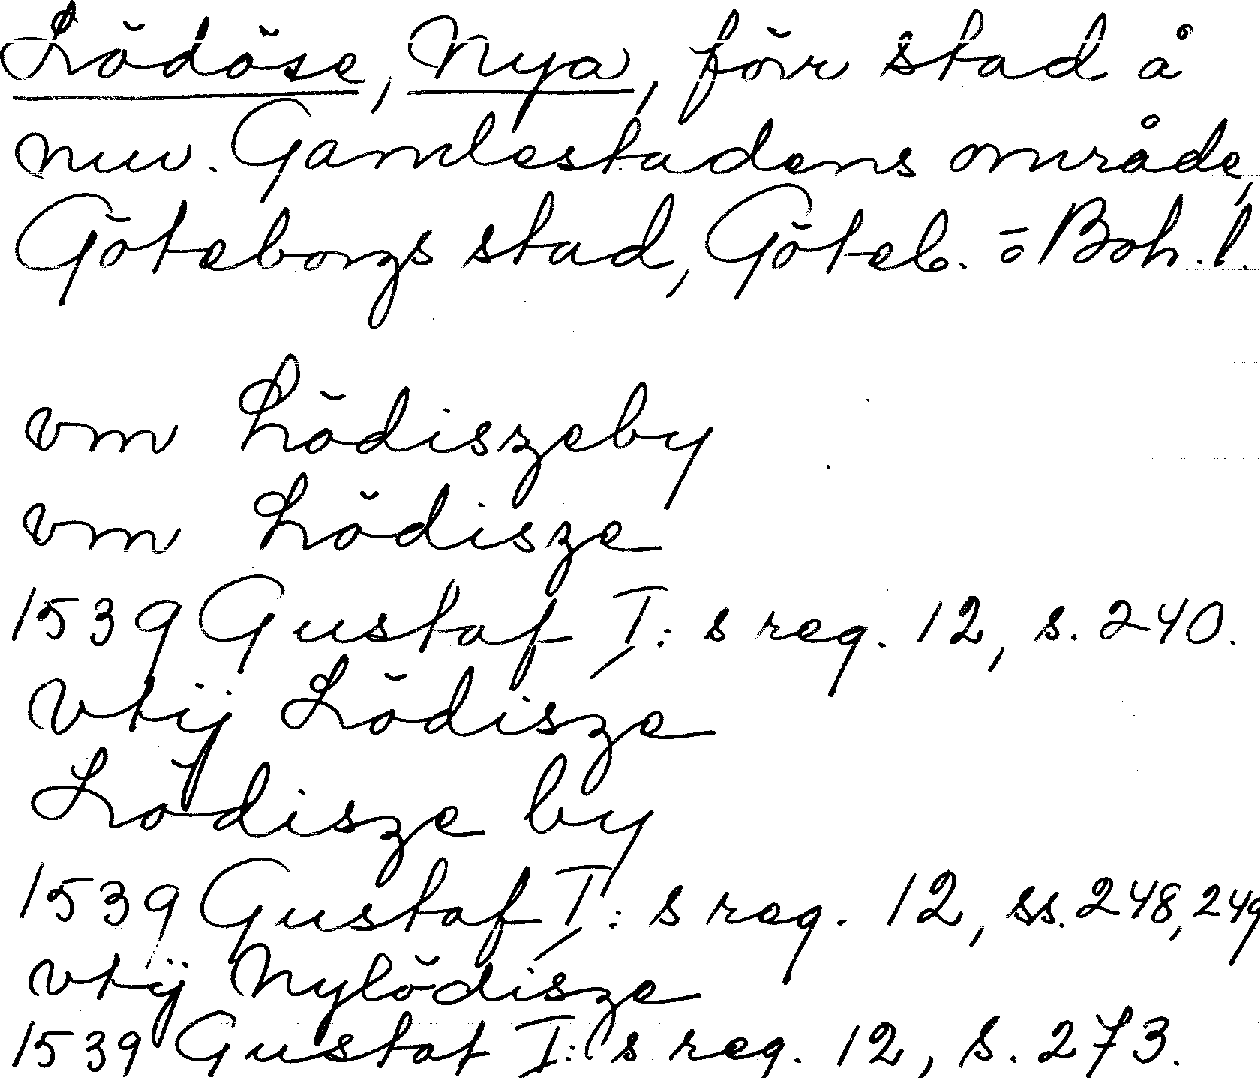 Lödöse, Nya, förr stad å
nuv. Gamlestadens område,
Göteborgs stad, Göteb. o Boh. l.
vm Lödiszeby
vm Lödisze
1539 Gustaf I:s reg. 12, s. 240.
vtij Lödisze
Lödisze by
1539 Gustaf I:s reg. 12, ss. 248, 249
vtij Nylödisze
1539 Gustaf I:s reg. 12, s. 273.